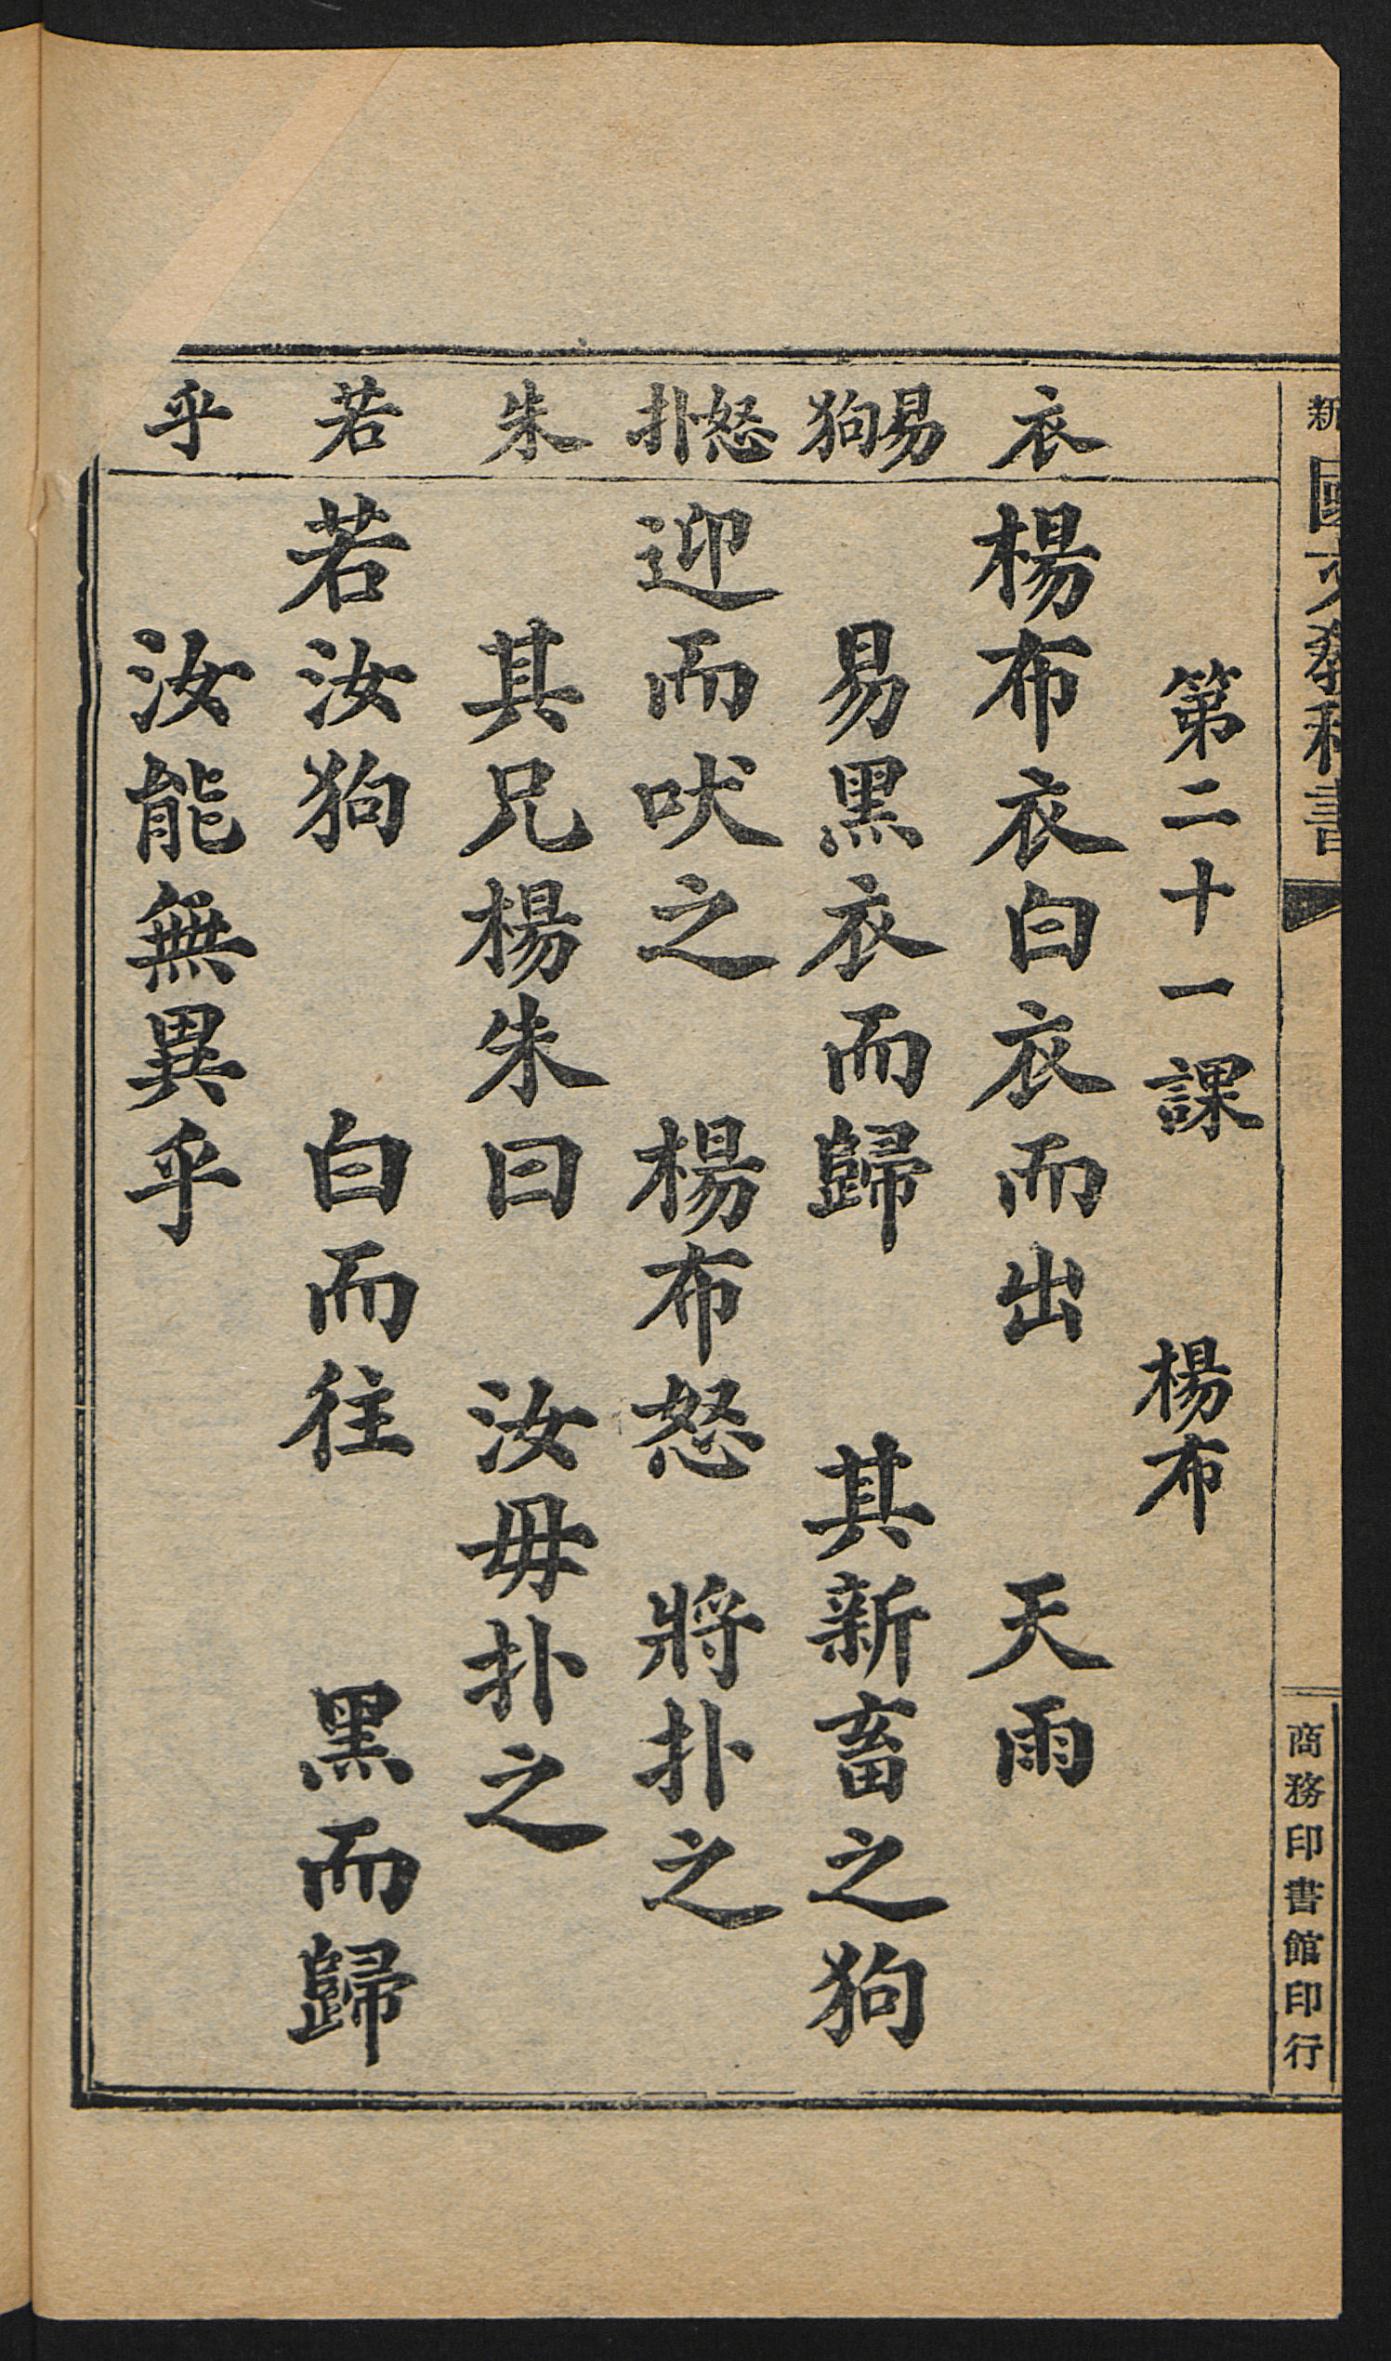 新國文教科書
商務印書館印行
第二十一課　楊布
衣
楊布衣白衣而出　天雨
易狗
易黑衣而歸　其新畜之狗
怒扑
迎而吠之　楊布怒　將扑之
朱
其兄楊朱曰　汝毋扑之
若
若汝狗　白而往　黑而歸
乎
汝能無異乎